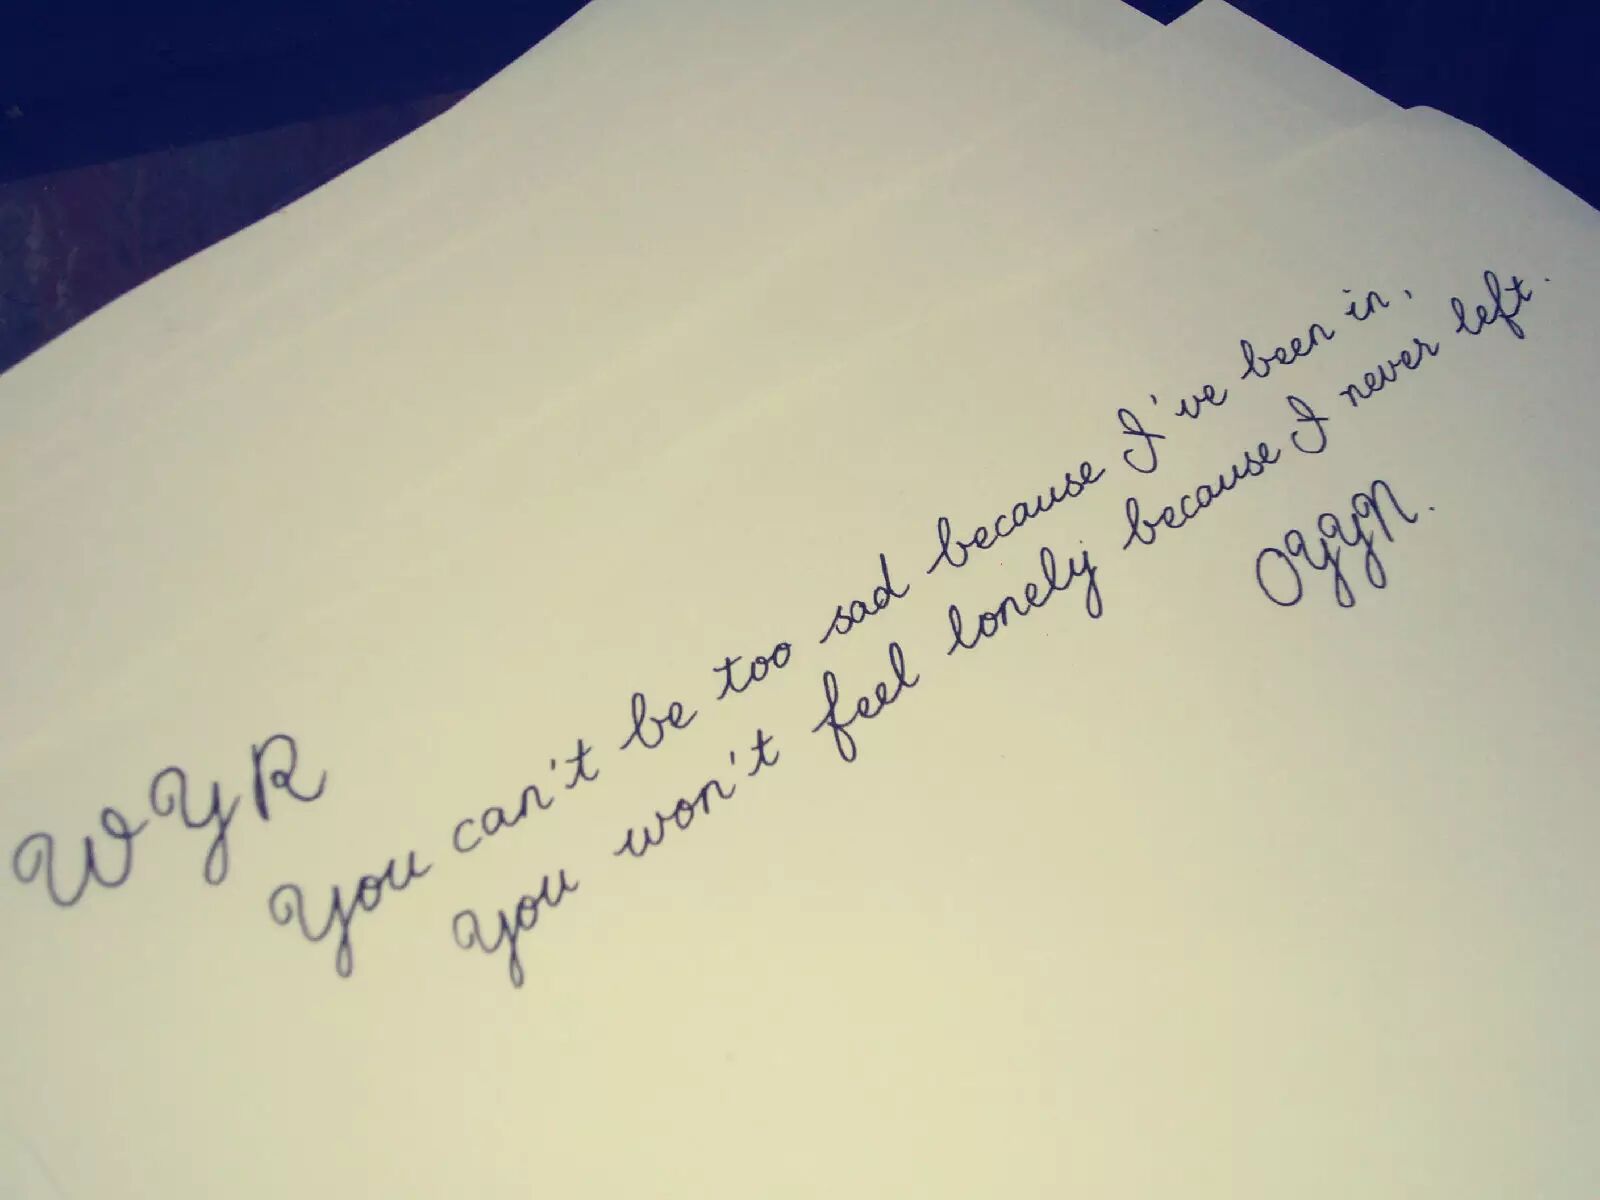 WYR
You can't be too sad because I've been in,
You won't feel lonely because I never left.
OYYN.